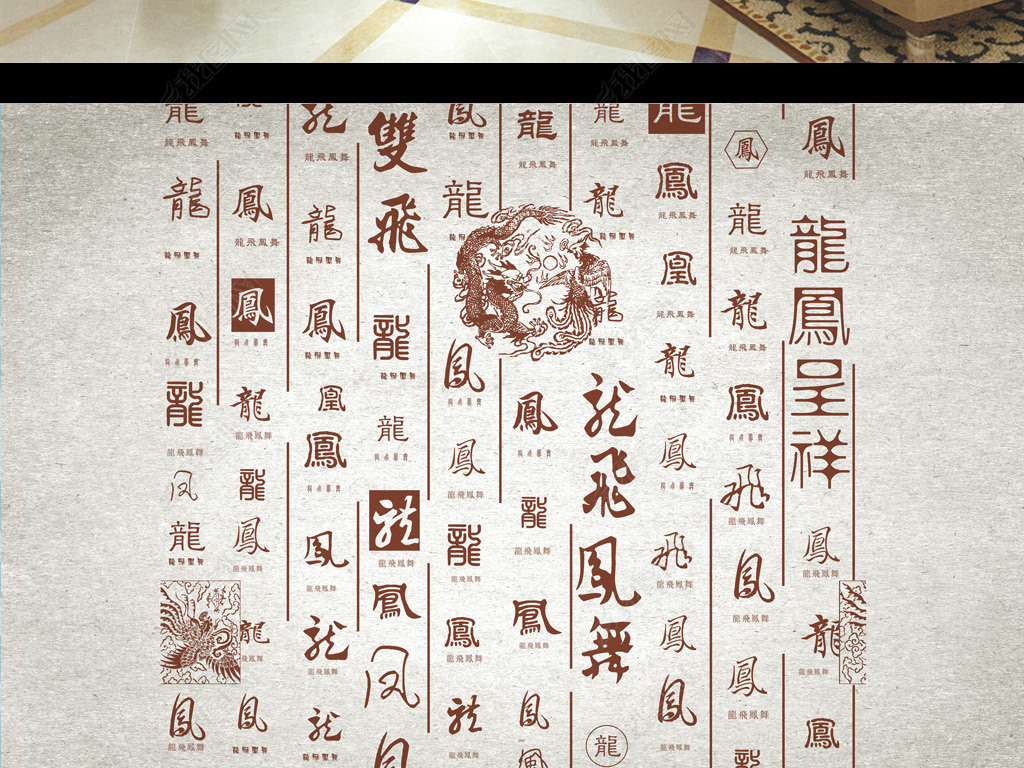 鳳
龍飛鳳舞
龍鳳呈祥
鳳
龍飛鳳舞
龍
龍飛鳳舞
鳳
鳳
龍
龍飛鳳舞
龍
龍飛鳳舞
鳳
飛
龍飛鳳舞
鳳
龍飛鳳舞
鳳
龍飛鳳舞
龍
鳳
龍飛鳳舞
凰
龍飛鳳舞
龍
鳳
飛
龍飛鳳舞
鳳
鳳
龍飛鳳舞
龍
龍飛鳳舞
龍
龍
龍飛鳳舞
龍
龍
龍飛鳳舞
鳳
龍
龍飛鳳舞
鳳
龍飛鳳舞
鳳
鳳
龍
鳳
鳳
龍飛鳳舞
龍
龍飛鳳舞
鳳
龍飛鳳舞
龍
龍飛鳳舞
雙飛
龍
龍
龍
龍飛鳳舞
鳳
凤
龍
龍飛鳳舞
龍
鳳
凰
鳳
鳳
龍飛鳳舞
龍
龍飛鳳舞
龍
鳳
龍飛鳳舞
鳳
龍
龍飛鳳舞
龍
鳳
龍飛鳳舞
龍
鳳舞
鳳
龍
龍飛鳳舞
龍
鳳
龍
龍飛鳳舞
凤
龍
鳳
龍飛鳳舞